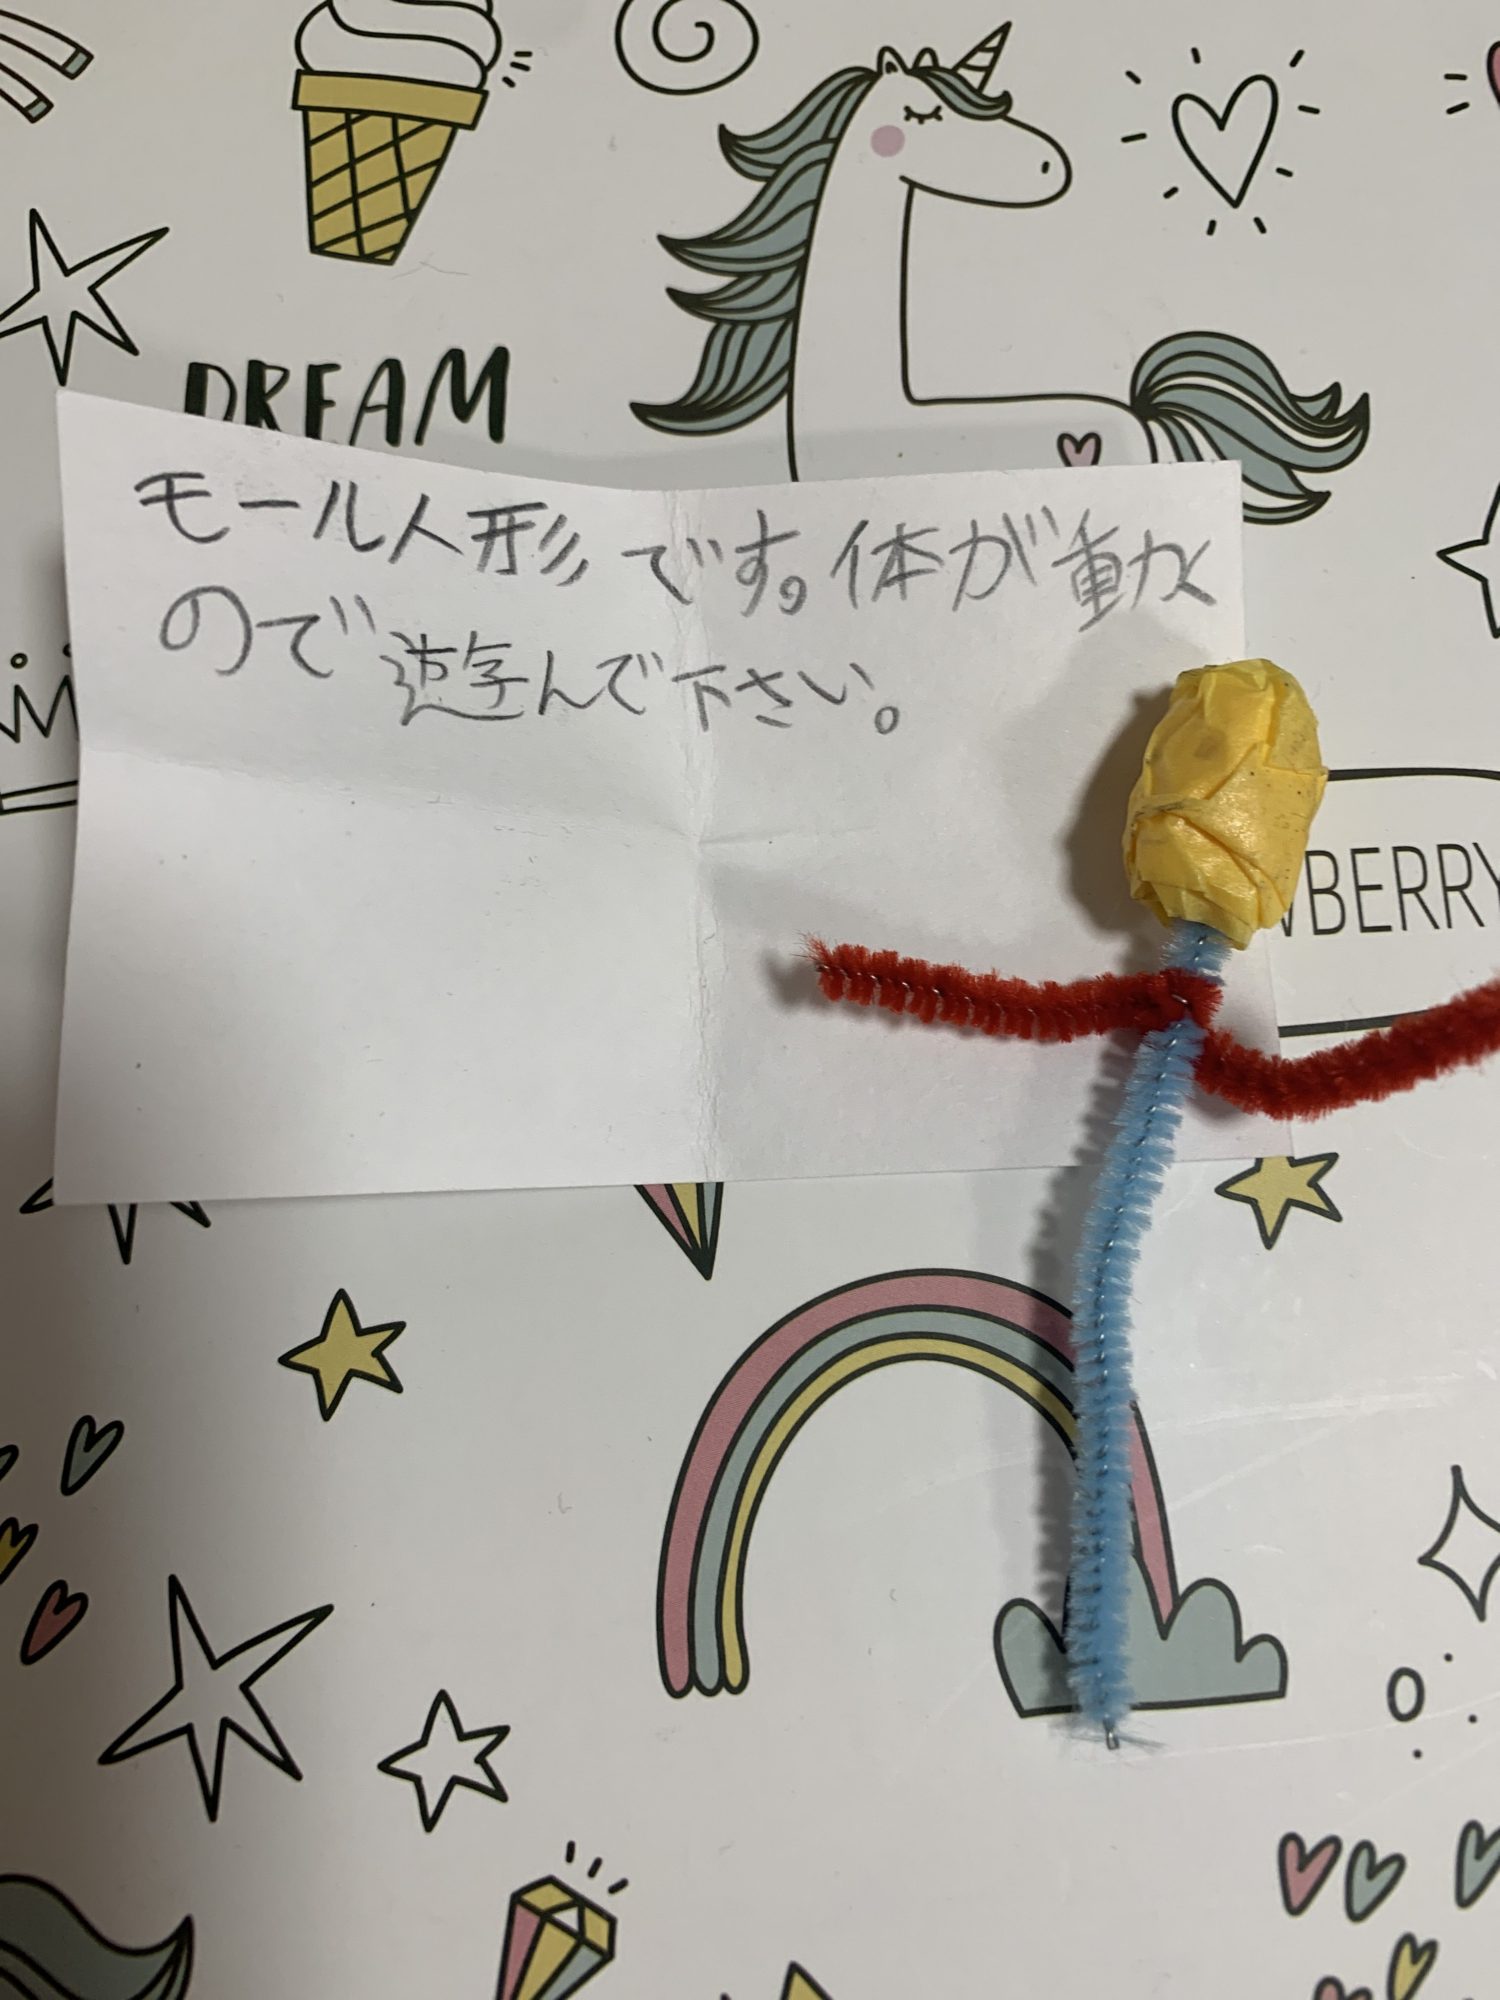 DREAM
モール人形です。体が動く
ので遊んで下さい。
BERRY